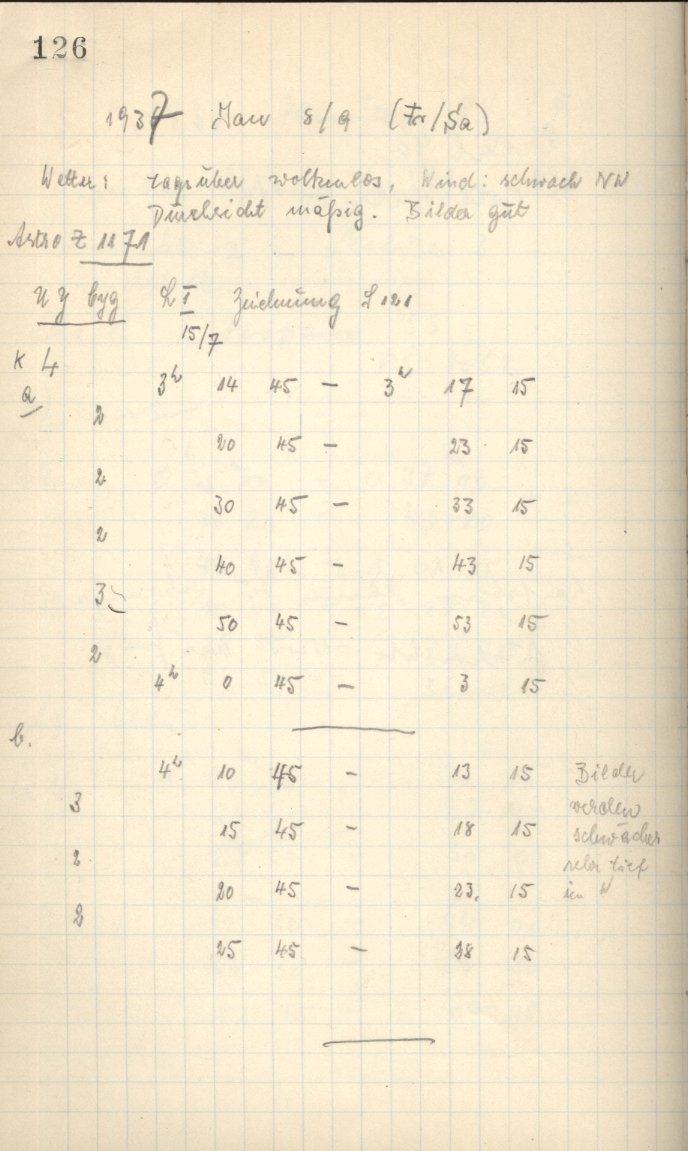 126
1937 Jan 8/9 (Fr/Sa)
Wetter: tagsüber wolkenlos, Wind: schwach NW
Durchsicht mäßig. Bilder gut
Astro Z 1171
Cyg LI Zeichnung L 121
15/7
K 4
a 3h 14 45 — 3h 17 15
2
20 45 — 23 15
2
30 45 — 33 15
2
40 45 — 43 15
3
50 45 — 53 15
2
4h 0 45 — 3 15
b.
4h 10 45 — 13 15 Bilder
3 werden
15 45 — 18 15 schwächer
2 sehr tief
20 45 — 23. 15 im W
2
25 45 — 28 15